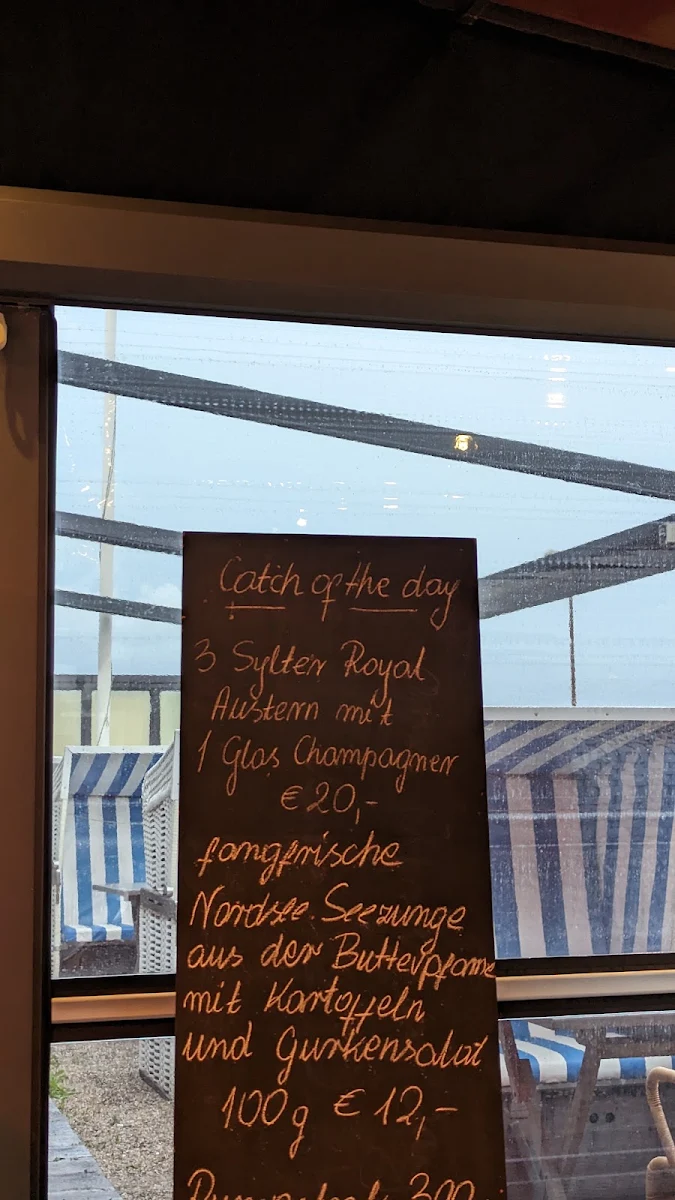 Catch of the day
3 Sylter Royal
Austern mit
1 Glas Champagner
€ 20,-
fangfrische
Nordsee-Seezunge
aus der Butterpfanne
mit Kartoffeln
und Gurkensalat
100g € 12,-